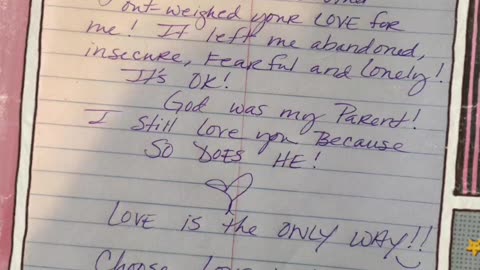 outweighed your LOVE for
me! It left me abandoned,
insecure, fearful and lonely!
It's OK!
God was my Parent!
I still love you Because
SO DOES HE!
LOVE is the ONLY WAY!!
Choose Love